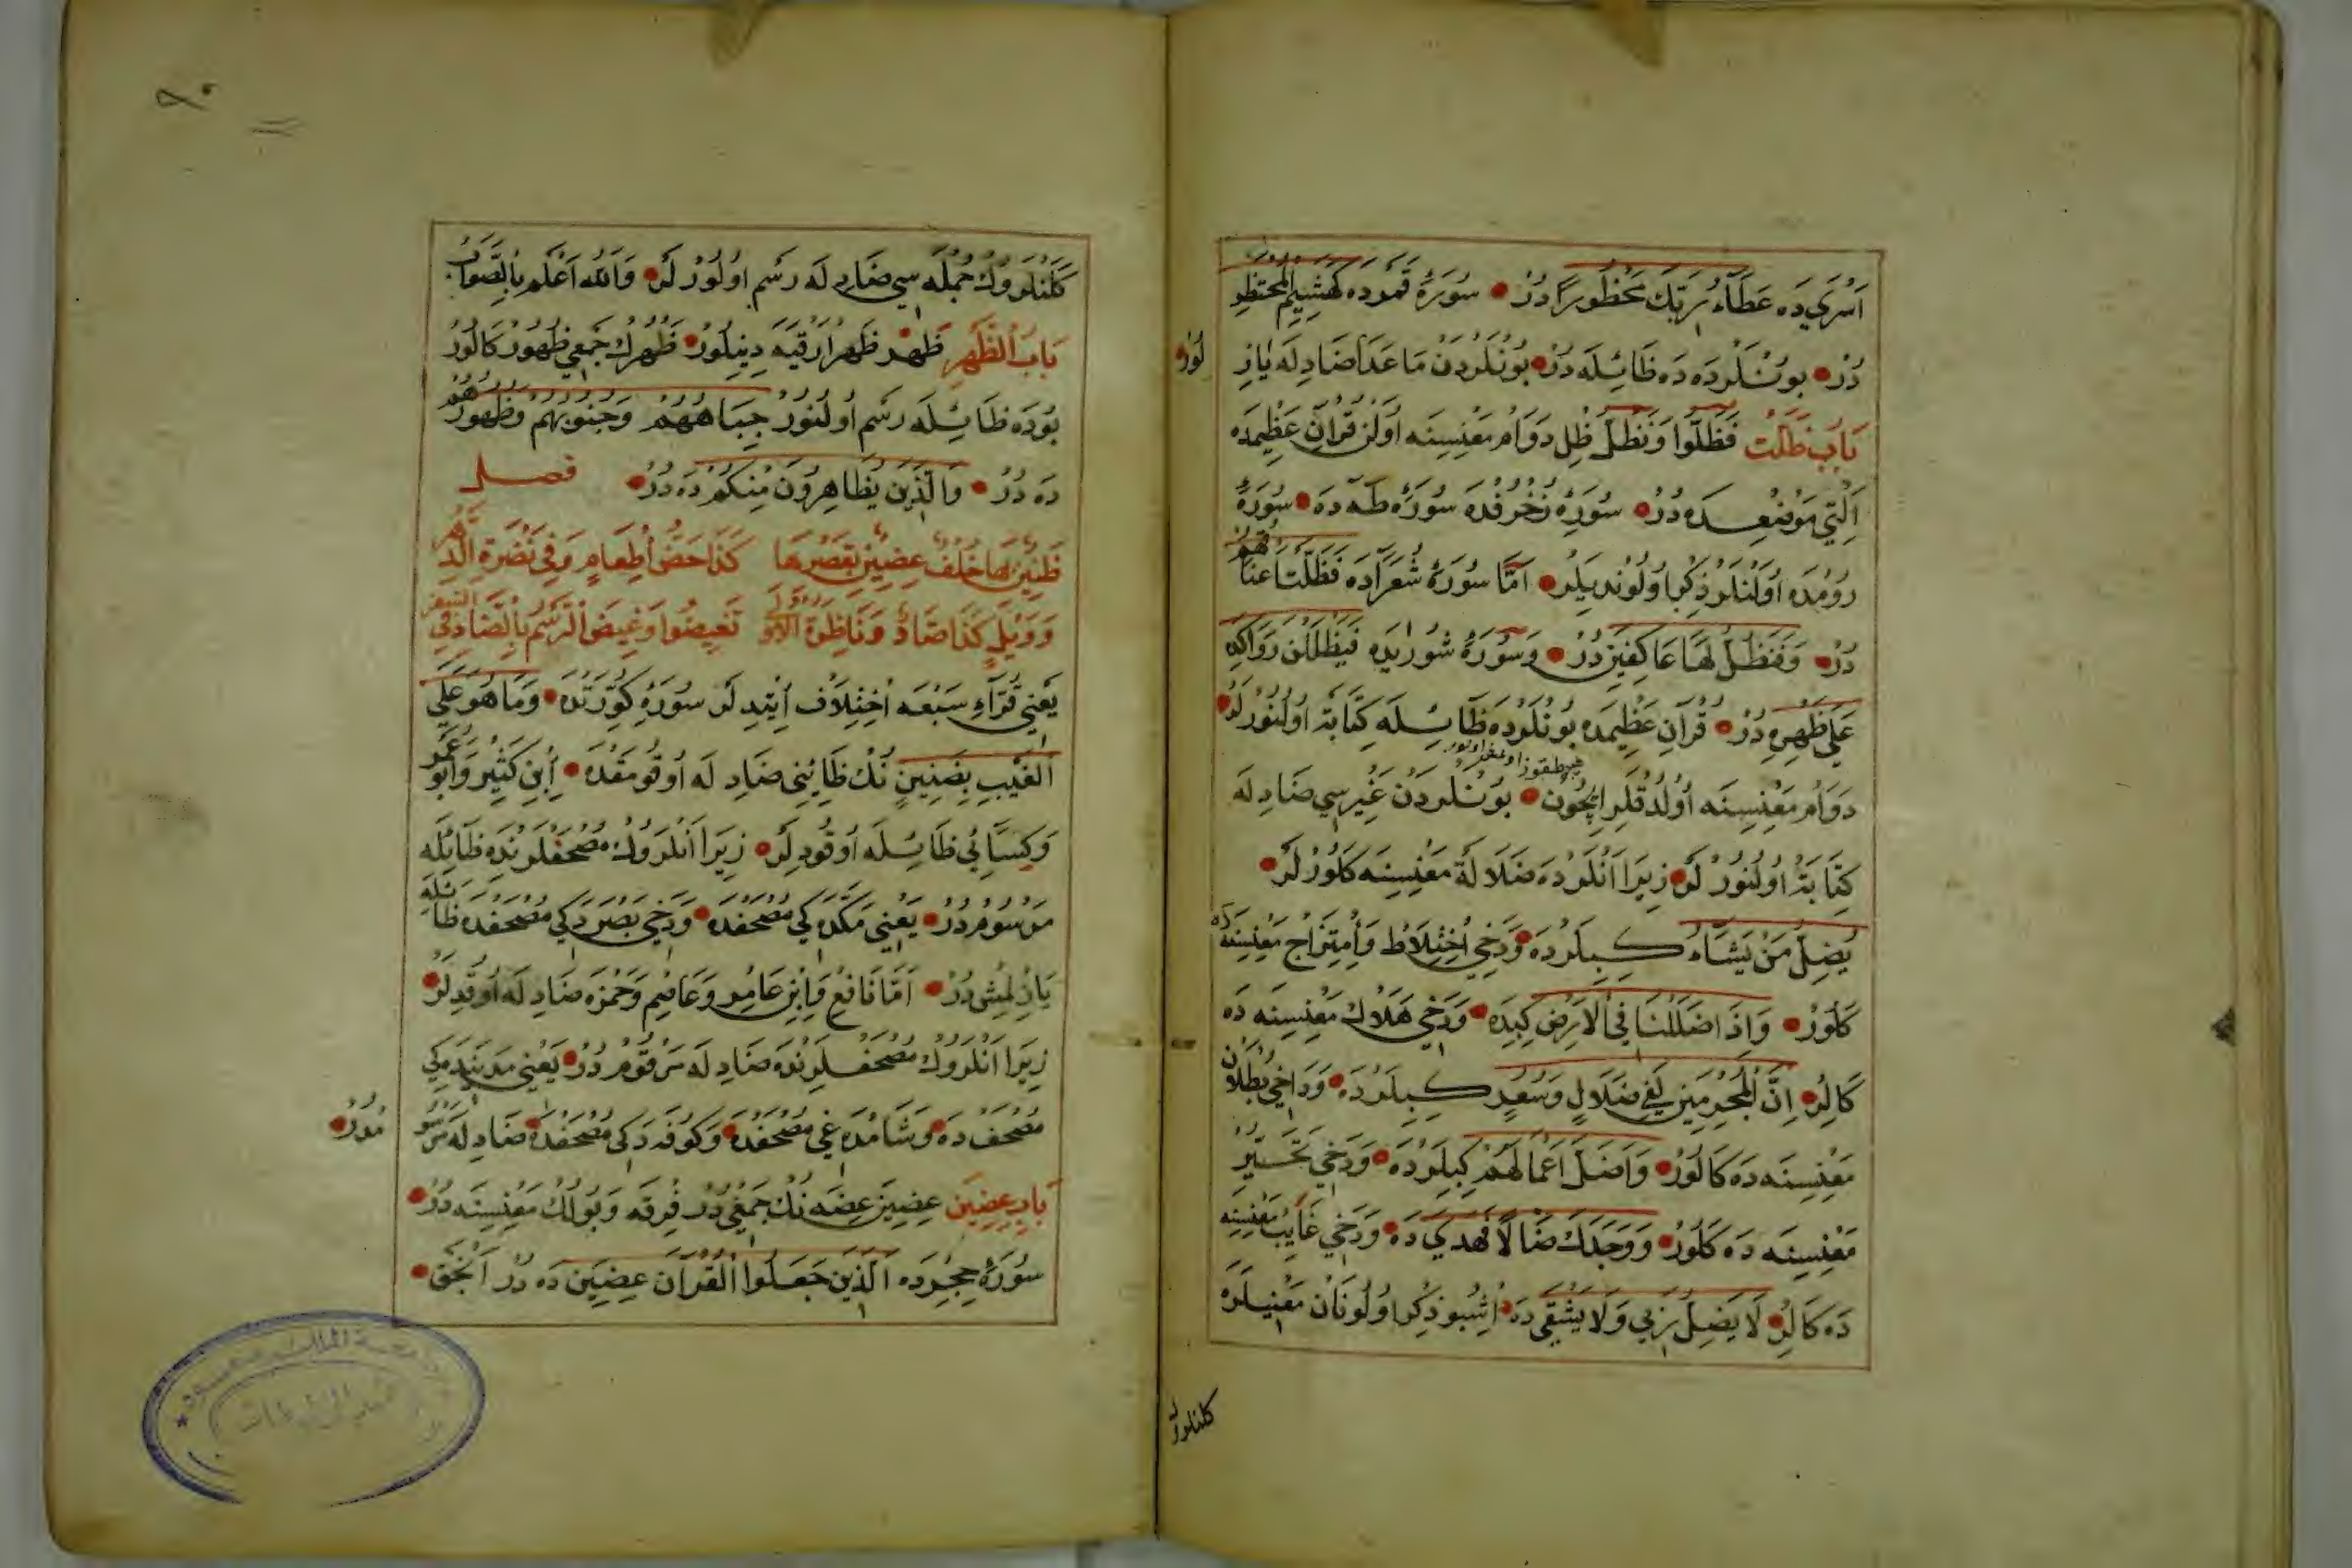 اَسْرٰى دَه عَطَآءُ رَبِّكَ مَحْظُورًا دُرْ سُورَۀ قَمَرده كَهَشِيمِ الْمُحْتَظِرِ
دُرْ بونْلَرده دَه ظَائِله دُرْ بُونْلَرْدَنْ مَا عَدَا ضَادِلَه يَازِ
لُورْ
بَابُ ظَلَّتْ فَظَلُّوا وَنَظَلُّ ظِل دَوَام مَعْنِسِنه اُولَنْ قُرْاٰنِ عَظِيمده
اَلْتِي مَوْضِعده دُرْ سُورَۀ زُخْرُفده سُورَۀ طٰهٰ ده سُورَۀ
رُومْدَه اُولْنلَر ذِكر اولُونديلر اَمَّا سُورَۀ شُعَرَآدَه فَظَلَّتْ اَعْنَاقُهُمْ
دُرْ وَفَنَظَلُّ لَهَا عَاكِفِينَ دُرْ وَسُورَۀ شُورٰيده فَيَظْلَلْنَ رَوَاكِدَ
عَلٰى ظَهْرِهِ دُرْ قُرْاٰنِ عَظِيمده بُونْلَرْده ظَائِله كِتَابَة اولُنُورْلَر
دَوَام مَعْنِسِنَه اُولْدُقْلَرِ ايچُون بُونْلردَنْ غَيْرِسِي ضَادِ لَه
كِتَابَة اُولُنُورْ لَر زِيرَا اَنْلَرْدَه ضَلَالَة مَعْنِسِنَه كَلُورْلَرْ
يُضِلُّ مَنْ يَشَآءُ كِبِلَرْدَه وَدَخِي اِخْتِلَاط وَاِمْتِزَاج مَعْنِسِنَه
كَلُورْ وَاِذَا ضَلَلْنَا فِي الْاَرْضِ كِبِيدَه وَدَخِي هَلَاك مَعْنِسِنه دَه
كَالِر اِنَّ الْمُجْرِمِينَ لَفِي ضَلَالٍ وَسُعُرٍ كِبِلَرْدَه وَدَاخِي بُطْلَان
مَعْنِسِنه دَه كَالُورْ وَاَضَلَّ اَعْمَالَهُمْ كِبِلَرْدَه وَدَخِي تَحَيُّر
مَعْنِسِنه دَه كَلُورْ وَوَجَدَكَ ضَالًّا فَهَدٰى دَه وَدَخِي غَايِب مَعْنِسِنه
دَه كَالِر لَا يَضِلُّ رَبِّي وَلَا يَشْقٰى دَه اُشبو ذِكر اولُونَان مَعْنِيلَره
كلنلرڭ
كَلَنْلَروُڭ جُمْلَه سِي ضَادِ لَه رَسْم اولُورْ لَر وَاللّٰهُ اَعْلَمُ بِالصَّوَابِ
بَابُ الظَّهْرِ ظَهْر ظَهْر اَرْقَيه دِينِلُورْ ظَهْرڭ جَمْعِي ظُهُورْ كَالُورْ
بُودَه ظَائِله رَسْم اُولُنُورْ جِبَاهُهُمْ وَجُنُوبُهُمْ وَظُهُورُهُمْ
دَه دُرْ وَالَّذِينَ يُظَاهِرُونَ مِنْكُمْ دَه دُرْ فصل
يَعْنِي قُرَّاءِ سَبْعَه اِخْتِلَاف اِيتدِ لَر سُورَۀ كُوِّرَتْدَه وَمَا هُوَ عَلَى
الْغَيْبِ بِضَنِينٍ نُڭ ظَائِنِي ضَادِ لَه اُوقُومَقْدَه اِبْنِ كَثِير وَاَبُو عَمْرو
وَكِسَائِي ظَائِله اُوقُودِلَر زِيرَا اَنْلَرُوڭ مُصْحَفْلَرِنْدَه ظَائِلَه
مَرْسُومدُرْ يَعْنِي مَكَّه دَكِي مُصْحَفْدَه وَدَخِي بَصْرَدَكِي مُصْحَفْدَه ظَائِلَه
يَازِلْمِش دُرْ اَمَّا نَافِع وَاِبْنِ عَامِر وَعَاصِم وَحَمْزَه ضَادِ لَه اُوقُدِلَر
زِيرَا اَنْلَرُوڭ مُصْحَفْلَرِنْدَه ضَادِ لَه مَرْقُوم دُرْ يَعْنِي مَدِينَه دَكِي
مُصْحَفْ دَه وَشَامْدَه غِي مُصْحَفْدَه وَكُوفَه دَكِي مُصْحَفْدَه ضَادِ لَه مَرْسُو
مْدُرْ
بَابِ عِضِينَ عِضِينَ عِضَه نُڭ جَمْعِي دُرْ فِرْقَه وَبُولُك مَعْنِسِنَه دُرْ
سُورَۀ حِجِرده اَلَّذِينَ جَعَلُوا الْقُرْاٰنَ عِضِينَ دَه دُرْ اَنْجَقْ